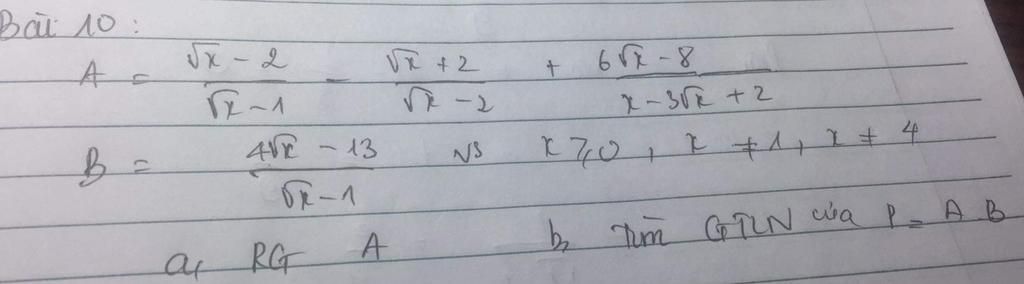 Bài 10 :
A = (√x - 2)/(√x - 1) - (√x + 2)/(√x - 2) + (6√x - 8)/(x - 3√x + 2)
B = (4√x - 13)/(√x - 1) vs x ⩾ 0, x ≠ 1, x ≠ 4
a, RG A b, Tìm GTLN của P = A B